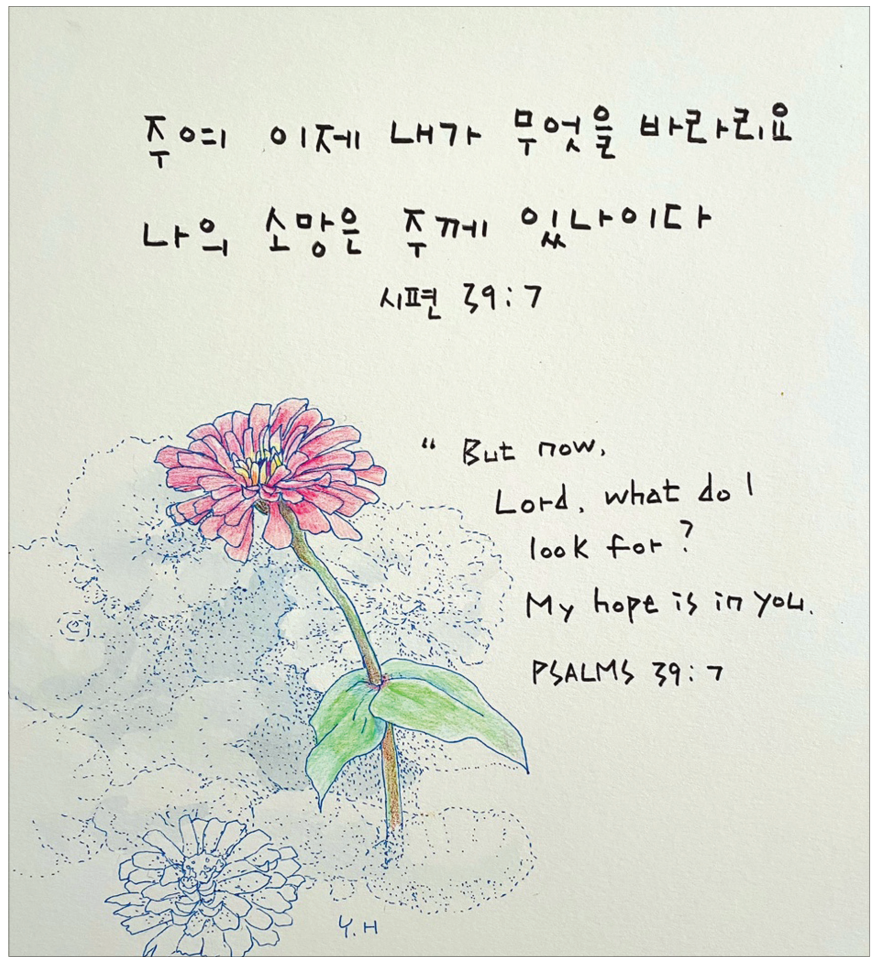 주여 이제 내가 무엇을 바라리요
나의 소망은 주께 있나이다
시편 39:7
“ But now,
Lord, what do I
look for?
My hope is in you.
PSALMS 39:7
Y.H